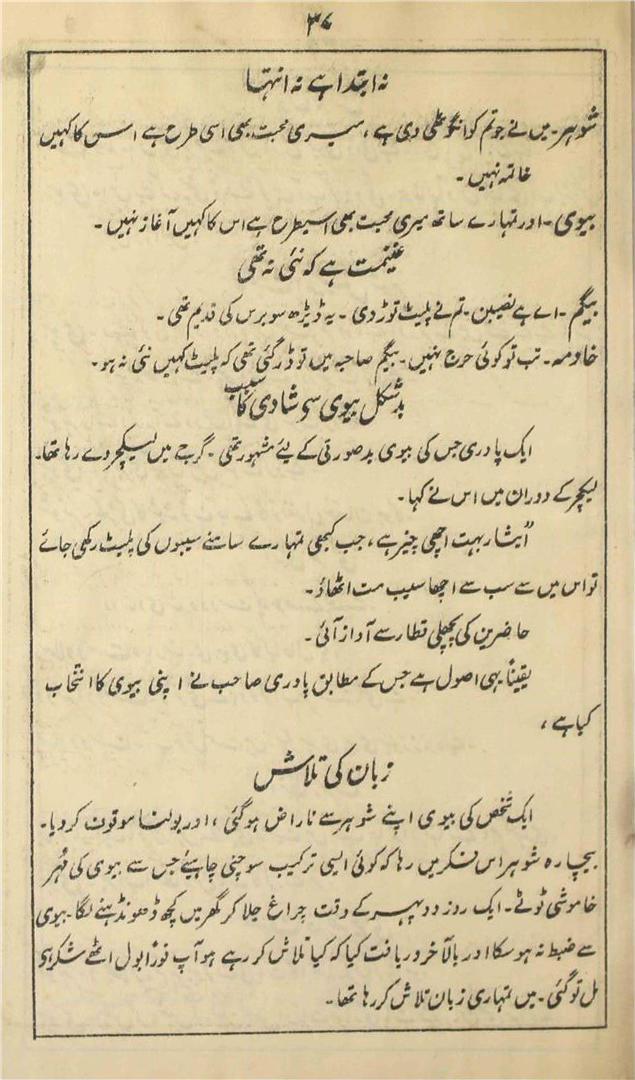 ۳۷
نہ ابتدا ہے نہ انتہا
شوہر۔ میں نے جو تم کو انگوٹھی دی ہے، میری محبت بھی اسی طرح ہے اس کا کہیں
خاتمہ نہیں۔
بیوی۔ اور تمہارے ساتھ میری محبت بھی اسیطرح ہے اس کا کہیں آغاز نہیں۔
غنیمت ہے کہ نئی نہ تھی
بیگم۔ اے ہے نصیبن۔ تم نے پلیٹ توڑ دی۔ یہ ڈیڑھ سو برس کی قدیم تھی۔
خادمہ۔ تب تو کوئی حرج نہیں۔ بیگم صاحبہ میں تو ڈر گئی تھی کہ پلیٹ کہیں نئی نہ ہو۔
بدشکل بیوی سے شادی کا سبب
ایک پادری جس کی بیوی بدصورتی کے لیئے مشہور تھی۔ گرجے میں لیکچر دے رہا تھا۔
لیکچر کے دوران میں اس نے کہا۔
"ایثار بہت اچھی چیز ہے، جب کبھی تمہارے سامنے سیبوں کی پلیٹ رکھی جائے
تو اس میں سے سب سے اچھا سیب مت اٹھاؤ۔
حاضرین کی پچھلی قطار سے آواز آئی۔
یقیناً یہی اصول ہے جس کے مطابق پادری صاحب نے اپنی بیوی کا انتخاب
کیا ہے،
زبان کی تلاش
ایک شخص کی بیوی اپنے شوہر سے ناراض ہوگئی، اور بولنا موقوف کر دیا۔
بیچارہ شوہر اس فکر میں رہا کہ کوئی ایسی ترکیب سوچنی چاہیئے جس سے بیوی کی مُہر
خاموشی ٹوٹے۔ ایک روز دوپہر کے وقت چراغ جلا کر گھر میں کچھ ڈھونڈہنے لگا۔ بیوی
سے ضبط نہ ہوسکا اور بالآخر دریافت کیا کہ کیا تلاش کر رہے ہو آپ فوراً بول اٹھے شکر ہی
مل تو گئی۔ میں تمہاری زبان تلاش کر رہا تھا۔